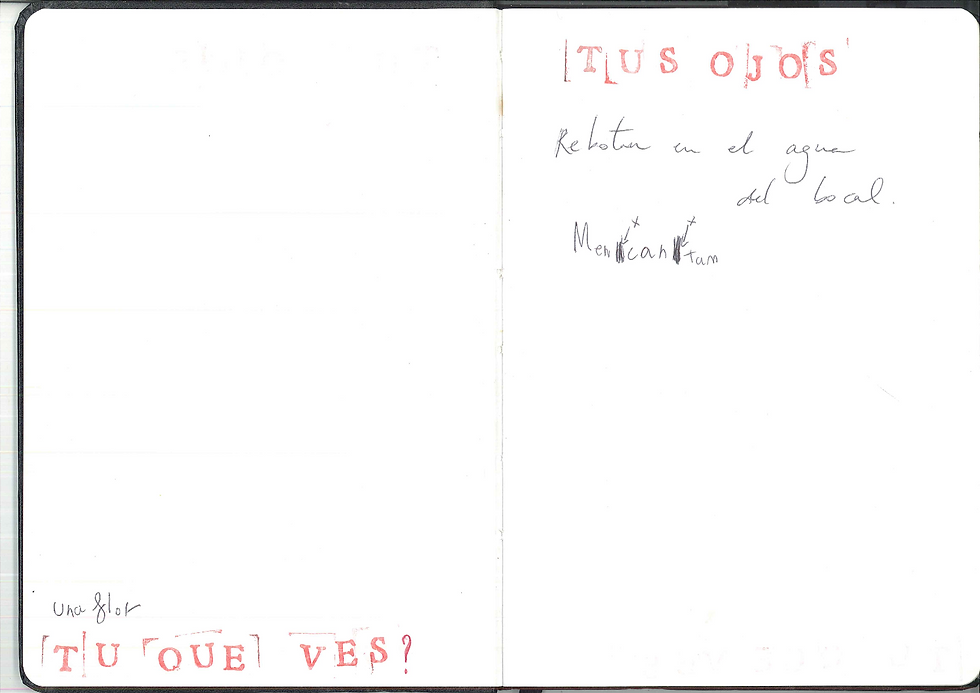 una flor
TU QUE VES?
TUS OJOS
Rebotan en el agua
del bocal.